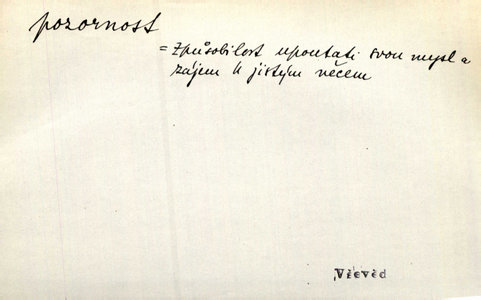 pozornost
= způsobilost upoutati svou mysl a
zájem k jistým věcem
Vševěd